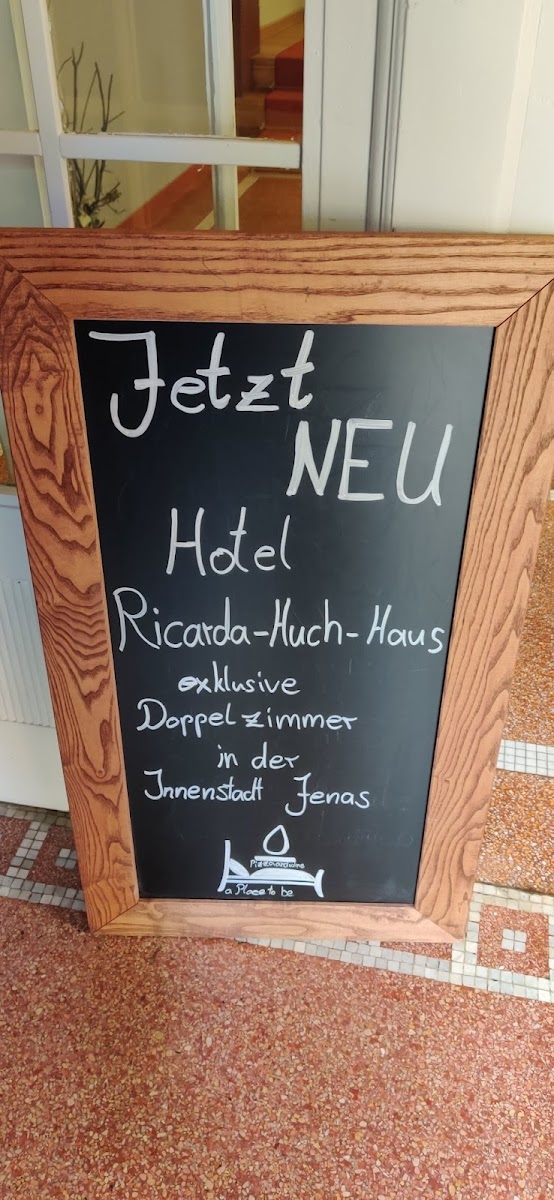 Jetzt
NEU
Hotel
Ricarda-Huch-Haus
exklusive
Doppelzimmer
in der
Innenstadt Jenas
a Place to be